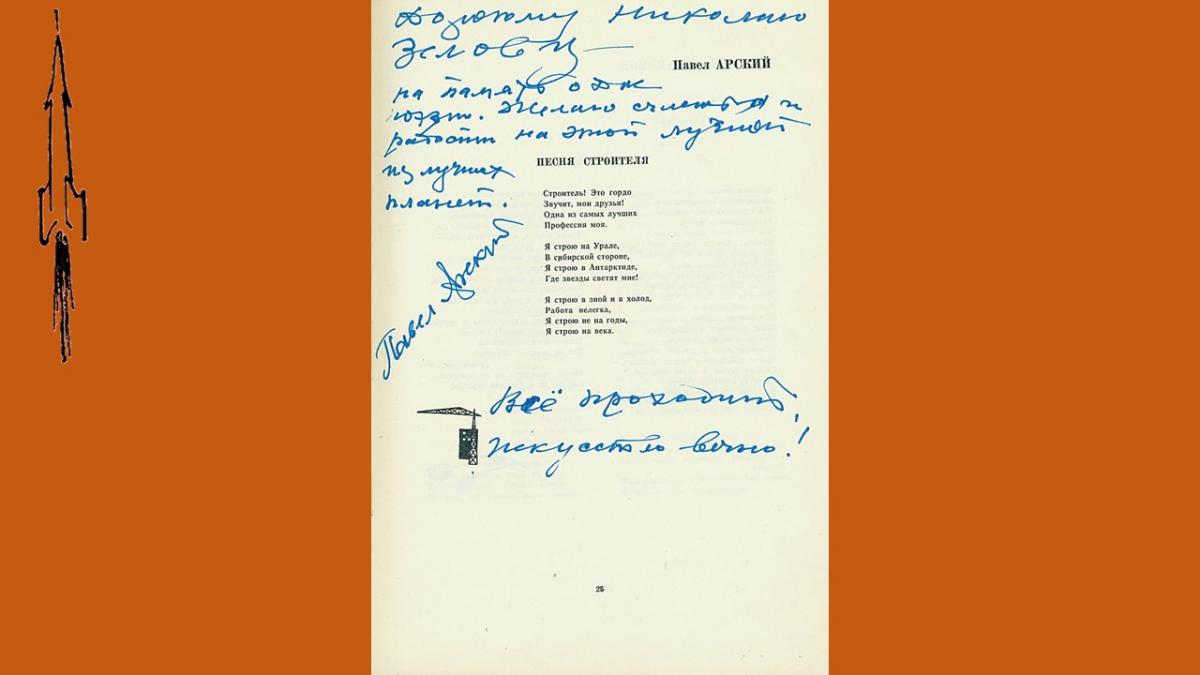 Дорогому Николаю
Павел АРСКИЙ
на память о
Желаю счастья и
радости на этой лучшей
из лучших
планет.
Павел Арский
ПЕСНЯ СТРОИТЕЛЯ
Строитель! Это гордо
Звучит, мои друзья!
Одна из самых лучших
Профессия моя.
Я строю на Урале,
В сибирской стороне,
Я строю в Антарктиде,
Где звезды светят мне!
Я строю в зной и в холод,
Работа нелегка,
Я строю не на годы,
Я строю на века.
Всё проходит,
искусство вечно!
25